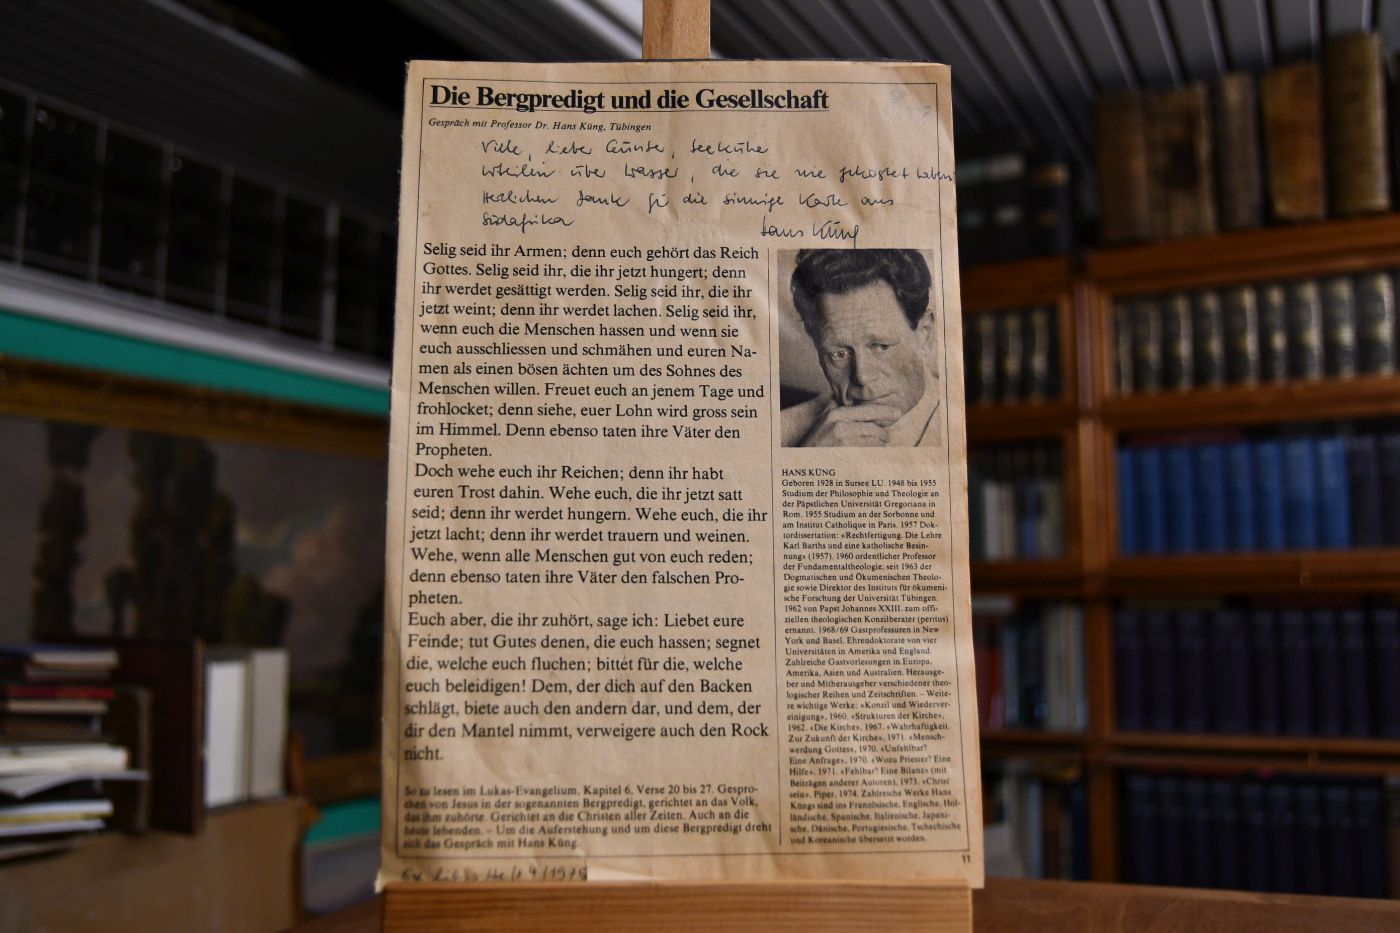 Die Bergpredigt und die Gesellschaft
Gespräch mit Professor Dr. Hans Küng, Tübingen
Viele, liebe Gunter, Seekühe
urteilen über Wasser, die sie nie gekostet haben
Herzlichen Dank für die sinnige Karte aus
Südafrika
Hans Küng
Selig seid ihr Armen; denn euch gehört das Reich
Gottes. Selig seid ihr, die ihr jetzt hungert; denn
ihr werdet gesättigt werden. Selig seid ihr, die ihr
jetzt weint; denn ihr werdet lachen. Selig seid ihr,
wenn euch die Menschen hassen und wenn sie
euch ausschliessen und schmähen und euren Na-
men als einen bösen ächten um des Sohnes des
Menschen willen. Freuet euch an jenem Tage und
frohlocket; denn siehe, euer Lohn wird gross sein
im Himmel. Denn ebenso taten ihre Väter den
Propheten.
Doch wehe euch ihr Reichen; denn ihr habt
euren Trost dahin. Wehe euch, die ihr jetzt satt
seid; denn ihr werdet hungern. Wehe euch, die ihr
jetzt lacht; denn ihr werdet trauern und weinen.
Wehe, wenn alle Menschen gut von euch reden;
denn ebenso taten ihre Väter den falschen Pro-
pheten.
Euch aber, die ihr zuhört, sage ich: Liebet eure
Feinde; tut Gutes denen, die euch hassen; segnet
die, welche euch fluchen; bittet für die, welche
euch beleidigen! Dem, der dich auf den Backen
schlägt, biete auch den andern dar, und dem, der
dir den Mantel nimmt, verweigere auch den Rock
nicht.
So zu lesen im Lukas-Evangelium, Kapitel 6, Verse 20 bis 27. Gespro-
chen von Jesus in der sogenannten Bergpredigt, gerichtet an das Volk,
das ihm zuhörte. Gerichtet an die Christen aller Zeiten. Auch an die
heute lebenden. – Um die Auferstehung und um diese Bergpredigt dreht
sich das Gespräch mit Hans Küng.
HANS KÜNG
Geboren 1928 in Sursee LU. 1948 bis 1955
Studium der Philosophie und Theologie an
der Päpstlichen Universität Gregoriana in
Rom. 1955 Studium an der Sorbonne und
am Institut Catholique in Paris. 1957 Dok-
tordissertation: «Rechtfertigung. Die Lehre
Karl Barths und eine katholische Besin-
nung» (1957). 1960 ordentlicher Professor
der Fundamentaltheologie, seit 1963 der
Dogmatischen und Ökumenischen Theolo-
gie sowie Direktor des Instituts für ökumeni-
sche Forschung der Universität Tübingen.
1962 von Papst Johannes XXIII. zum offi-
ziellen theologischen Konzilberater (peritus)
ernannt. 1968/69 Gastprofessuren in New
York und Basel. Ehrendoktorate von vier
Universitäten in Amerika und England.
Zahlreiche Gastvorlesungen in Europa,
Amerika, Asien und Australien. Herausge-
ber und Mitherausgeber verschiedener theo-
logischer Reihen und Zeitschriften. – Weite-
re wichtige Werke: «Konzil und Wiederver-
einigung», 1960. «Strukturen der Kirche»,
1962. «Die Kirche», 1967. «Wahrhaftigkeit.
Zur Zukunft der Kirche», 1971. «Mensch-
werdung Gottes», 1970. «Unfehlbar?
Eine Anfrage», 1970. «Wozu Priester? Eine
Hilfe», 1971. «Fehlbar? Eine Bilanz» (mit
Beiträgen anderer Autoren), 1973. «Christ
sein», Piper, 1974. Zahlreiche Werke Hans
Küngs sind ins Französische, Englische, Hol-
ländische, Spanische, Italienische, Japani-
sche, Dänische, Portugiesische, Tschechische
und Koreanische übersetzt worden.
11
Ex Libris Heft 4/1975